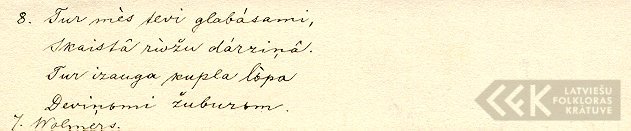 8. Tur mēs tevi glabāsami,
Skaistâ rìvžu dárziņâ.
Tur izauga kupla lôpa
Deviņomi žuburom.
7. Wolmers.
LATVIEŠU
FOLKLORAS
KRĀTUVE